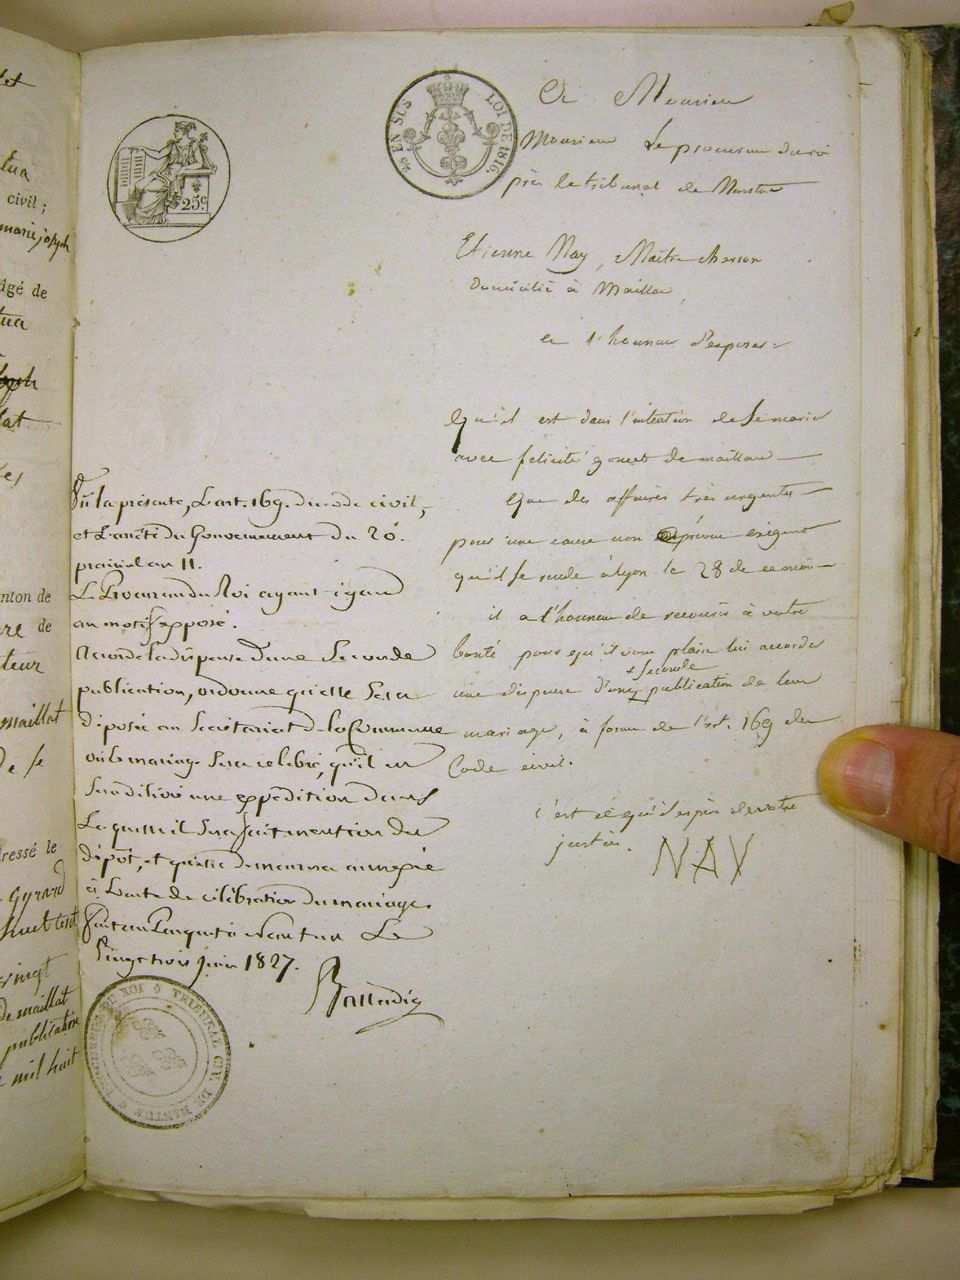 25.c
EN SUS LOI DE 1816.
A Monsieur
Monsieur Le procureur du roi
près le tribunal de Nantua
Etienne Nay, Maître
domicilié à Maillat,
a l'honneur d'exposer
Qu'il est dans l'intention de se marier
avec félicité de maillat
Que des affaires très urgentes
pour une cause non prévue exigent
qu'il se rende à Lyon le 28 de ce mois
il a l'honneur de recourir à votre
bonté pour qu'il vous plaise lui accorder
une dispense d'une seconde publication de leur
mariage, à forme de l'art. 169 du
Code civil.
C'est ce qu'il espère de votre
justice.
NAY
Vû la présente, L'art. 169. du code civil,
et L'arrêté du Gouvernement du 20.
prairial an 11.
Le Procureur du Roi ayant égard
au motif exposé.
Accorde la dispense d'une Seconde
publication, ordonne qu'elle Sera
déposée au Secrétariat de la Commune
où le mariage Sera célébré, qu'il en
Sera délivré une expédition dans
Laquelle il Sera fait mention du
dépôt, et qu'elle demeurera annexée
à L'acte de célébration du mariage.
fait au Parquet à Nantua Le
Vingt trois Juin 1827.
PROCUREUR DU ROI TRIBUNAL CIV. DE NANTUA
tua
civil ;
marie joseph
igé de
tua
lat
nton de
re de
teur
maillat
de Se
ressé le
Gyrard
huit cent
vingt
de maillat
publication
mil huit